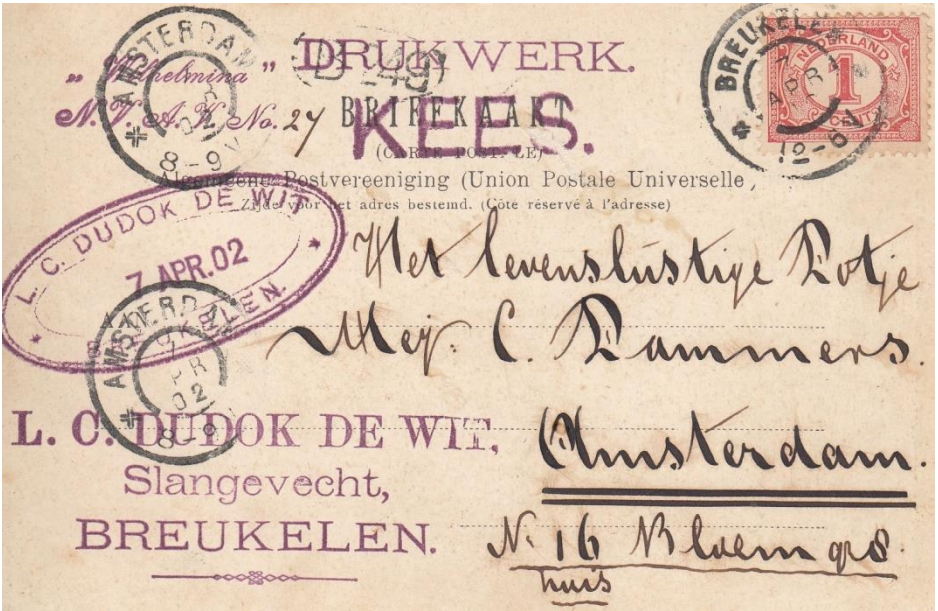 DRUKWERK.
„ Wilhelmina „
N.V. A.K. No. 27
KEES.
BRIEFKAART
(CARTE POSTALE)
Algemeene Postvereeniging (Union Postale Universelle)
Zijde voor het adres bestemd. (Côté réservé à l'adresse)
AMSTERDAM
8-9V
BREUKELEN
7 APR
12-6N
NEDERLAND
1
CENT
L. C. DUDOK DE WIT
7 APR.02
BREUKELEN.
AMSTERDAM
8-9
Het levenslustige
Mej. C. Dammers.
Amsterdam.
N. 16 Bloemgr
huis
L. C. DUDOK DE WIT,
Slangevecht,
BREUKELEN.